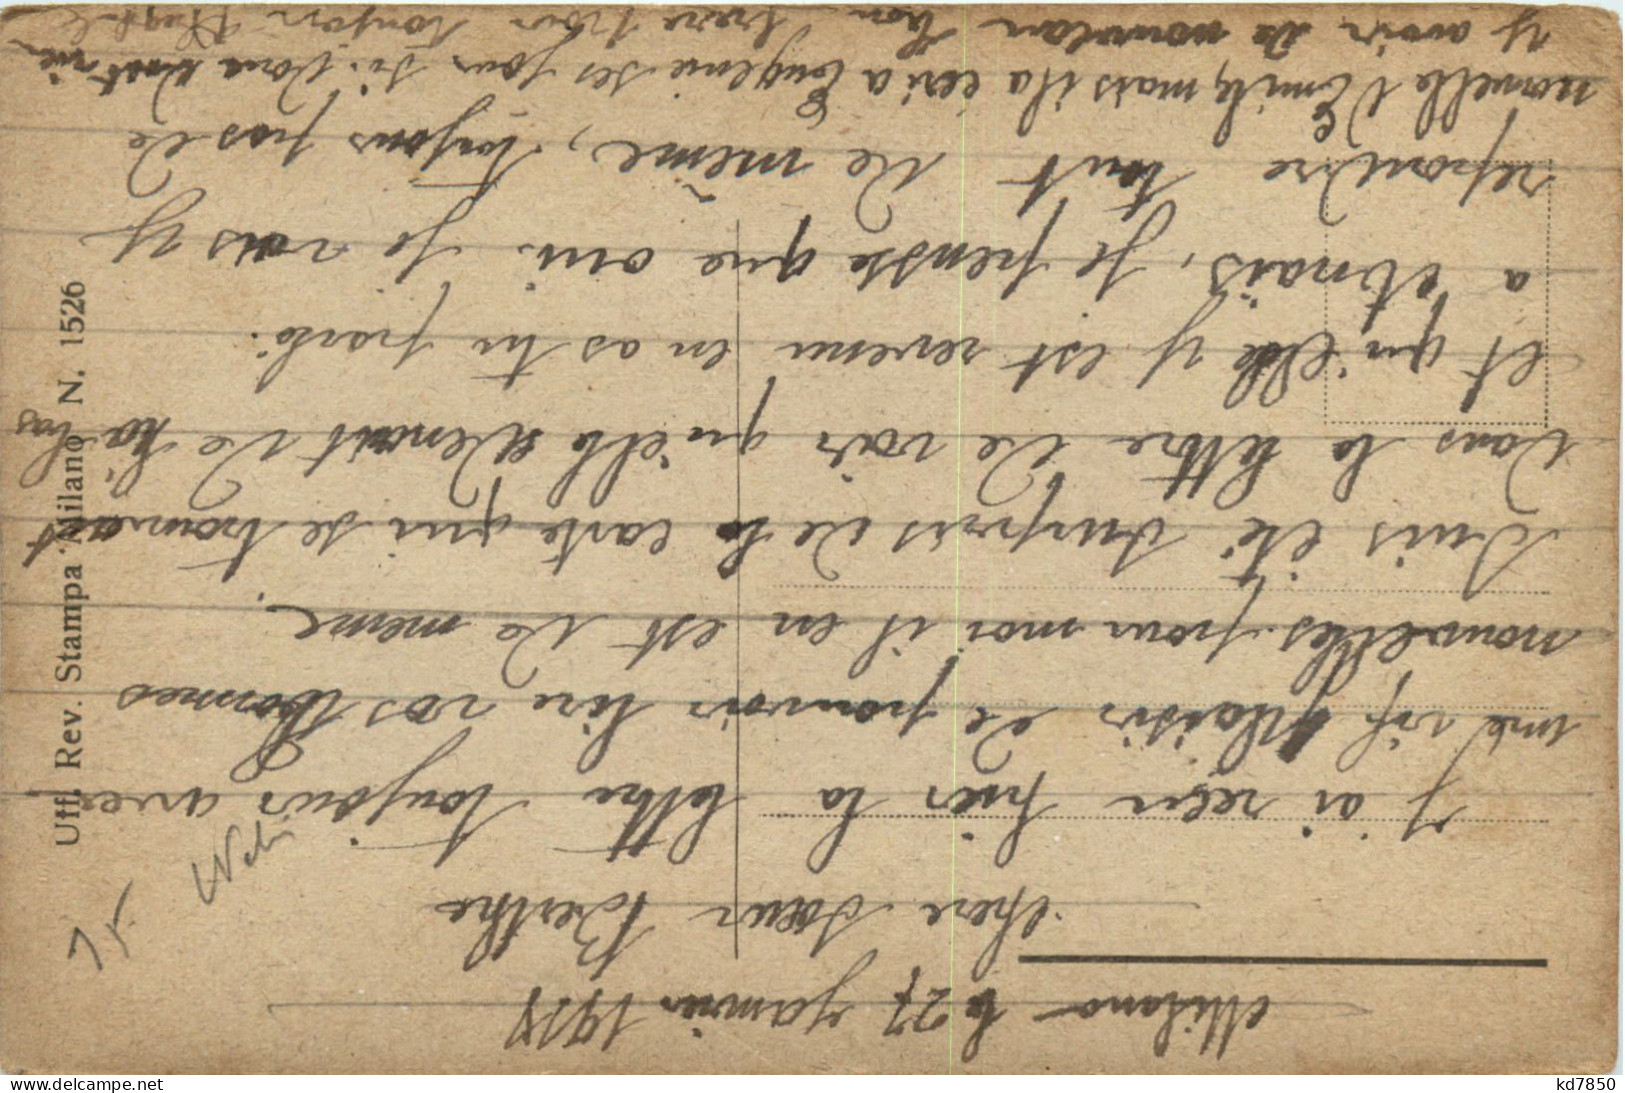 Milano le 27 Janvier 1918
Chere Sœur Berthe
J'ai reçu hier la lettre toujour avec
une vif plaisir de pouvoir lire vos bonnes
nouvelles pour moi il en est de meme.
Suis été surpris de la carte qui se trouvait
dans la lettre de voir qu'elle venait de la bas
et qu'elle y est revenu en as tu parlé.
a , je pensse que oui. Je vais y
repondre tout de même, toujours pas de
nouvelle d'Emile, mais il a ecri a Eugenie ses jour si. rien
y avoir de nouveau bien
Uff. Rev. Stampa Milano N. 1526
kd7850